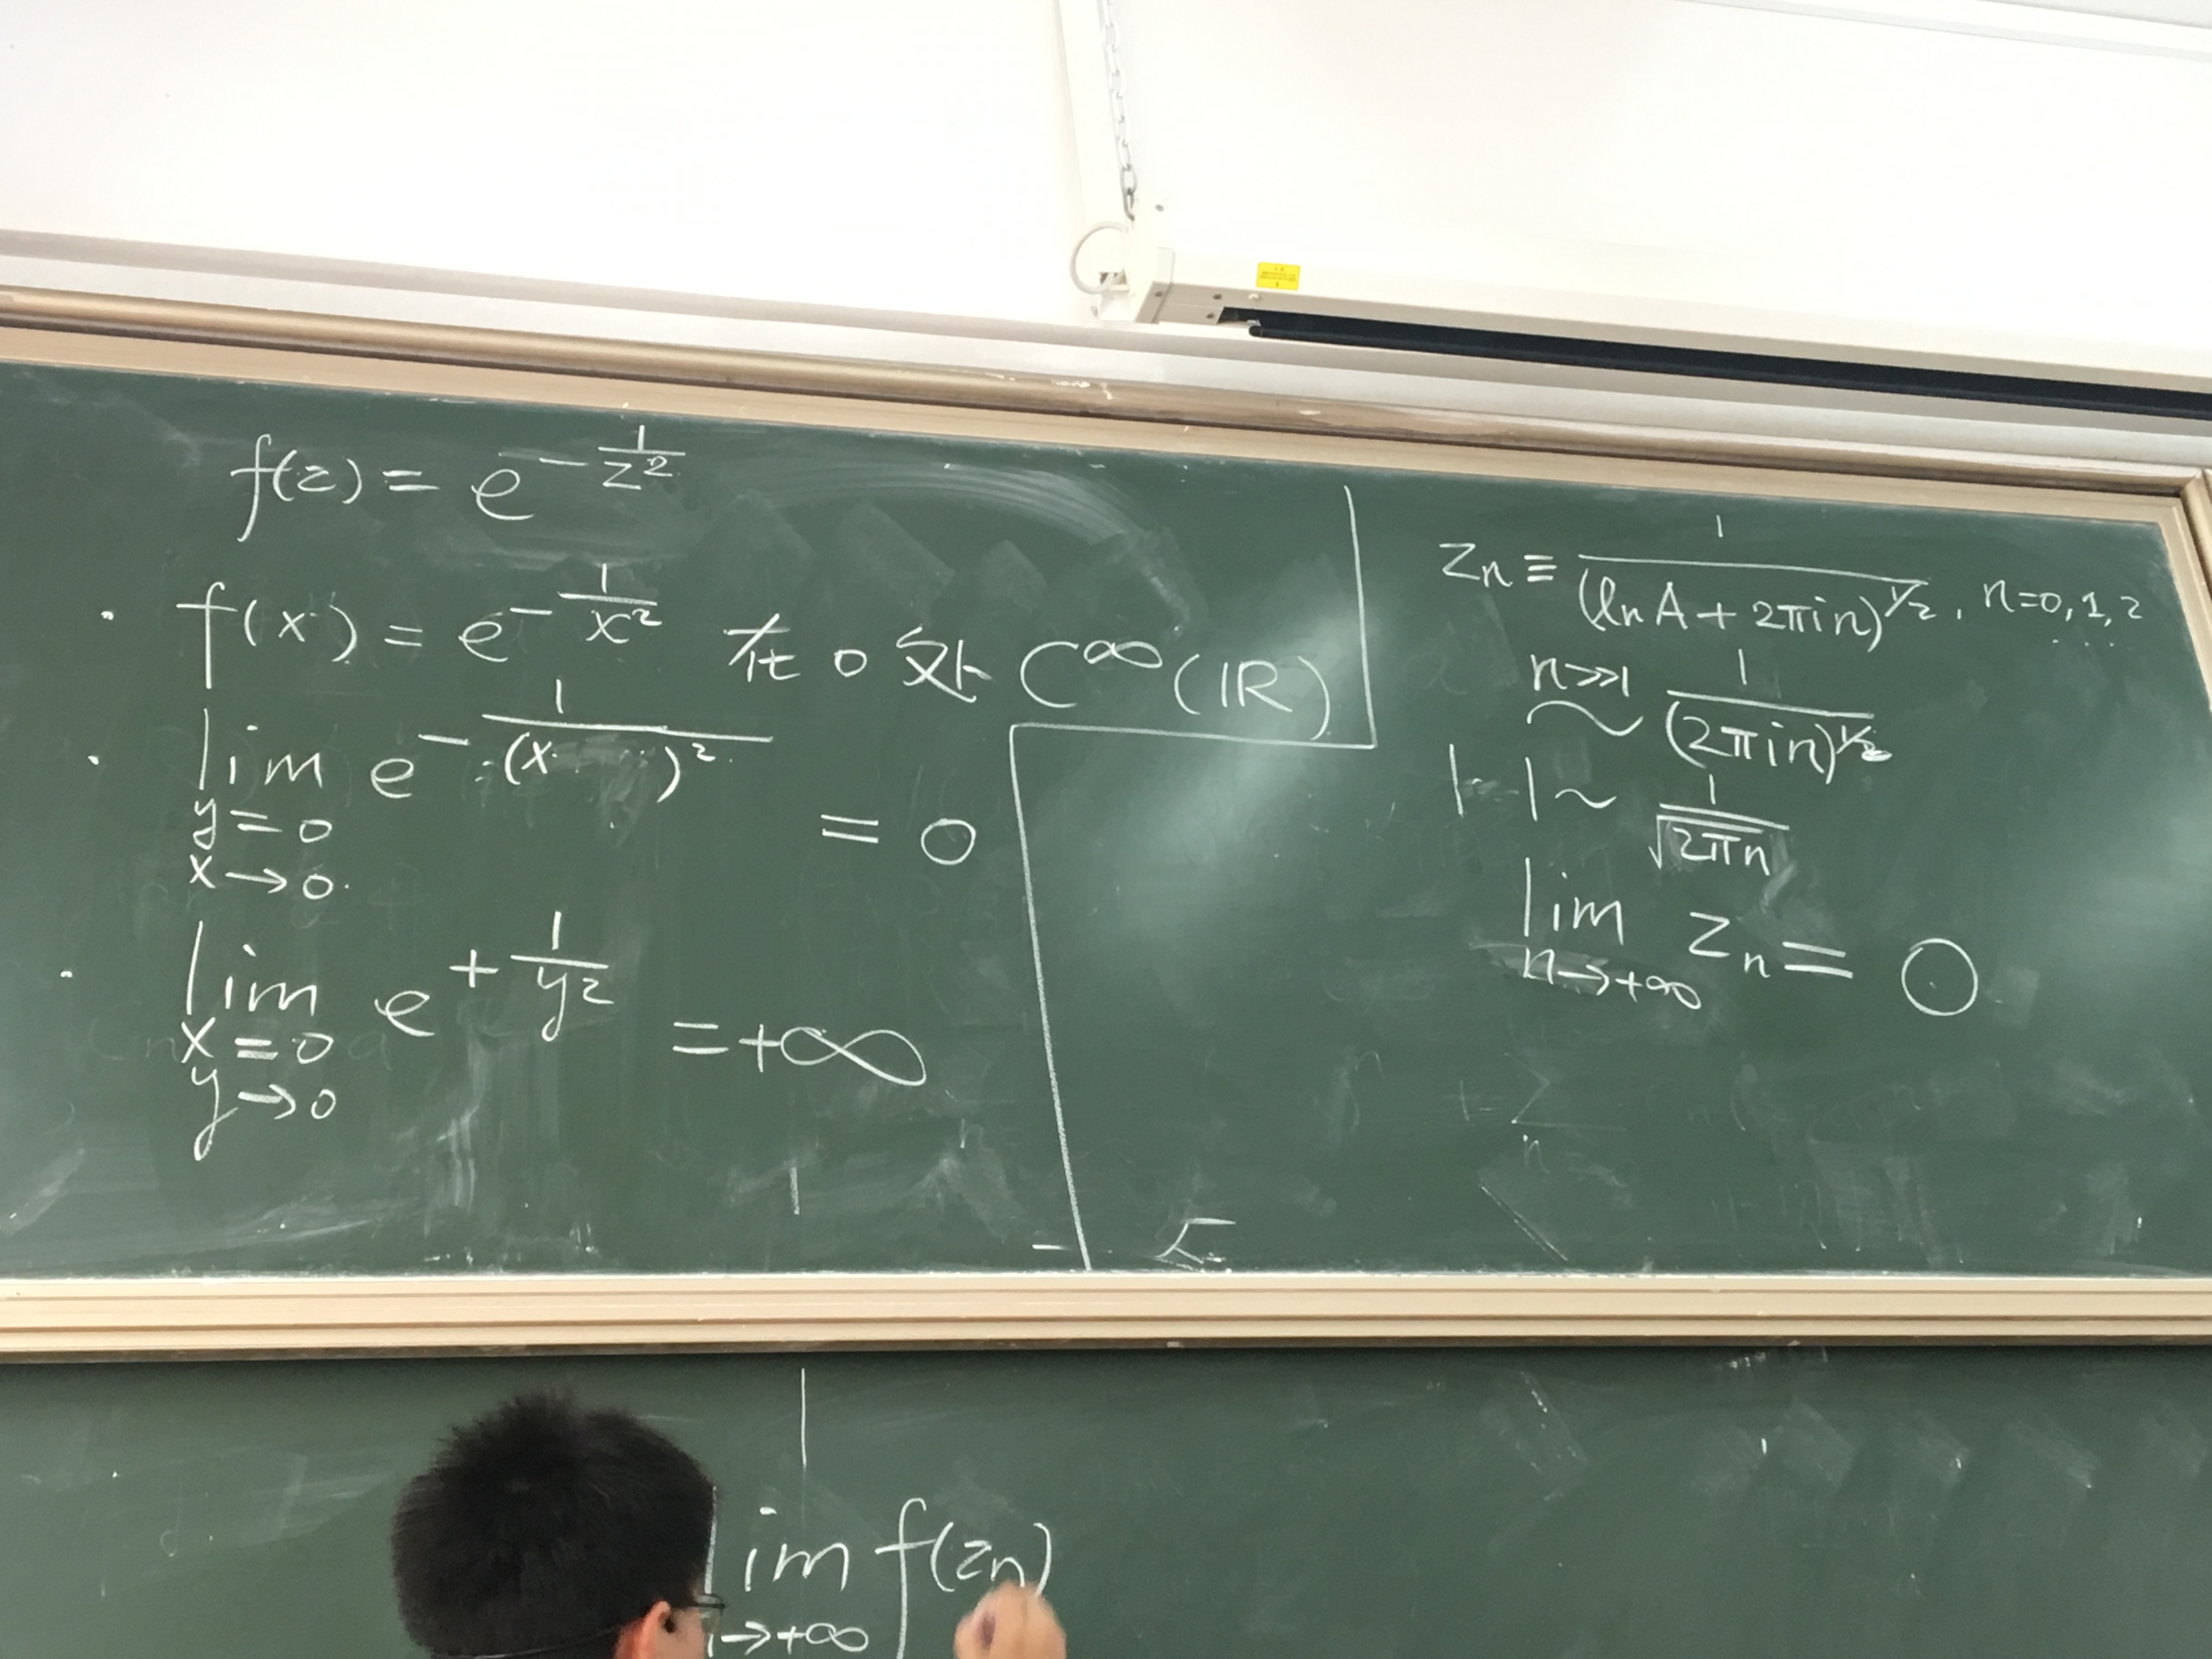 f(z) = e^{-\frac{1}{z^2}}
· f(x) = e^{-\frac{1}{x^2}} 在 0 处 C^∞(ℝ)
· lim_{y=0, x→0} e^{-\frac{1}{(x )^2}} = 0
· lim_{x=0, y→0} e^{+\frac{1}{y^2}} = +∞
z_n ≡ \frac{1}{(ln A + 2πin)^{1/2}}, n=0,1,2 ...
n>>1 ~ \frac{1}{(2πin)^{1/2}}
| · | ~ \frac{1}{\sqrt{2πn}}
lim_{n→+∞} z_n = 0
lim f(z_n)
→+∞